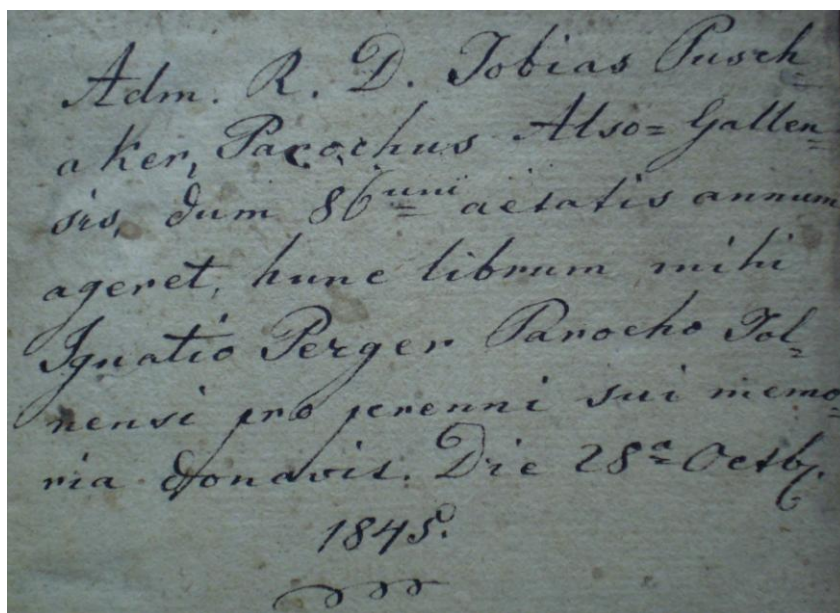 Adm. R. D. Tobias Pusch
aker, Parochus Also= Gallen=
sis, dum 86umi aetatis annum
ageret, hunc librum mihi
Ignatio Perger Parocho Tol=
nensi pro perenni sui memo
ria donavit. Die 28a Octb.
1845.